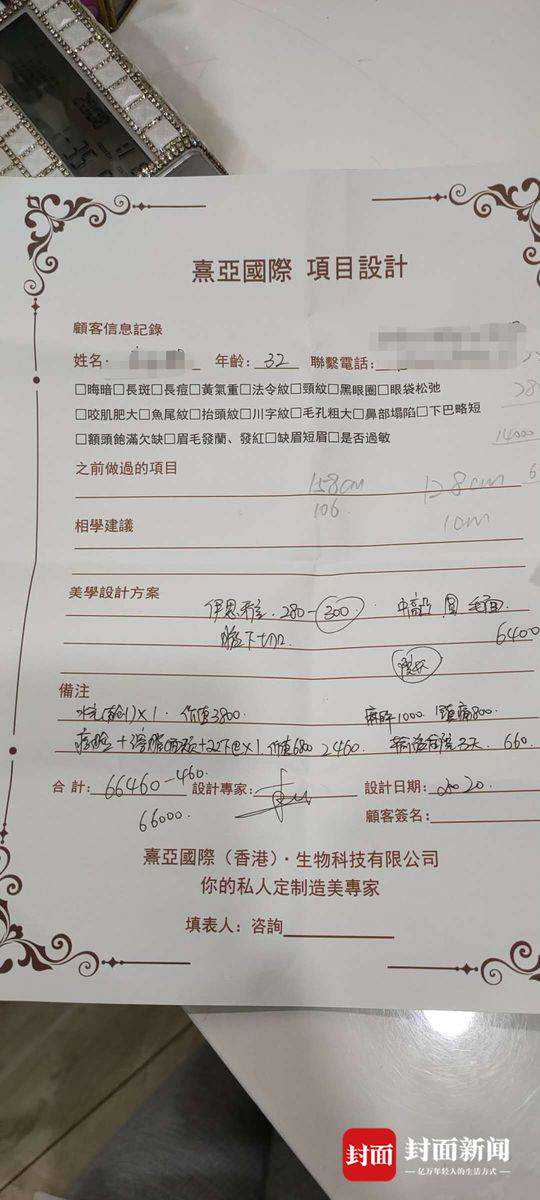 熹亞國際 項目設計
顧客信息記錄
姓名: 年齡: 32 聯繫電話:
□晦暗□長斑□長痘□黃氣重□法令紋□頸紋□黑眼圈□眼袋松弛
□咬肌肥大□魚尾紋□抬頭紋□川字紋□毛孔粗大□鼻部塌陷□下巴略短
14000
□額頭飽滿欠缺□眉毛發蘭、發紅□缺眉短眉□是否過敏
之前做過的項目
158cm 128cm
106 10m
相學建議
美學設計方案
280-300 中高凸 圓 毛面.
下切口 6400
備注
×1. 价值3800. 麻醉1000 800.
×1 价值6800 2460. 3天. 660.
合計: 66460-460. 設計專家: 設計日期:
66000. 顧客簽名:
熹亞國際（香港）·生物科技有限公司
你的私人定制造美專家
填表人: 咨詢
封面 封面新闻
亿万年轻人的生活方式